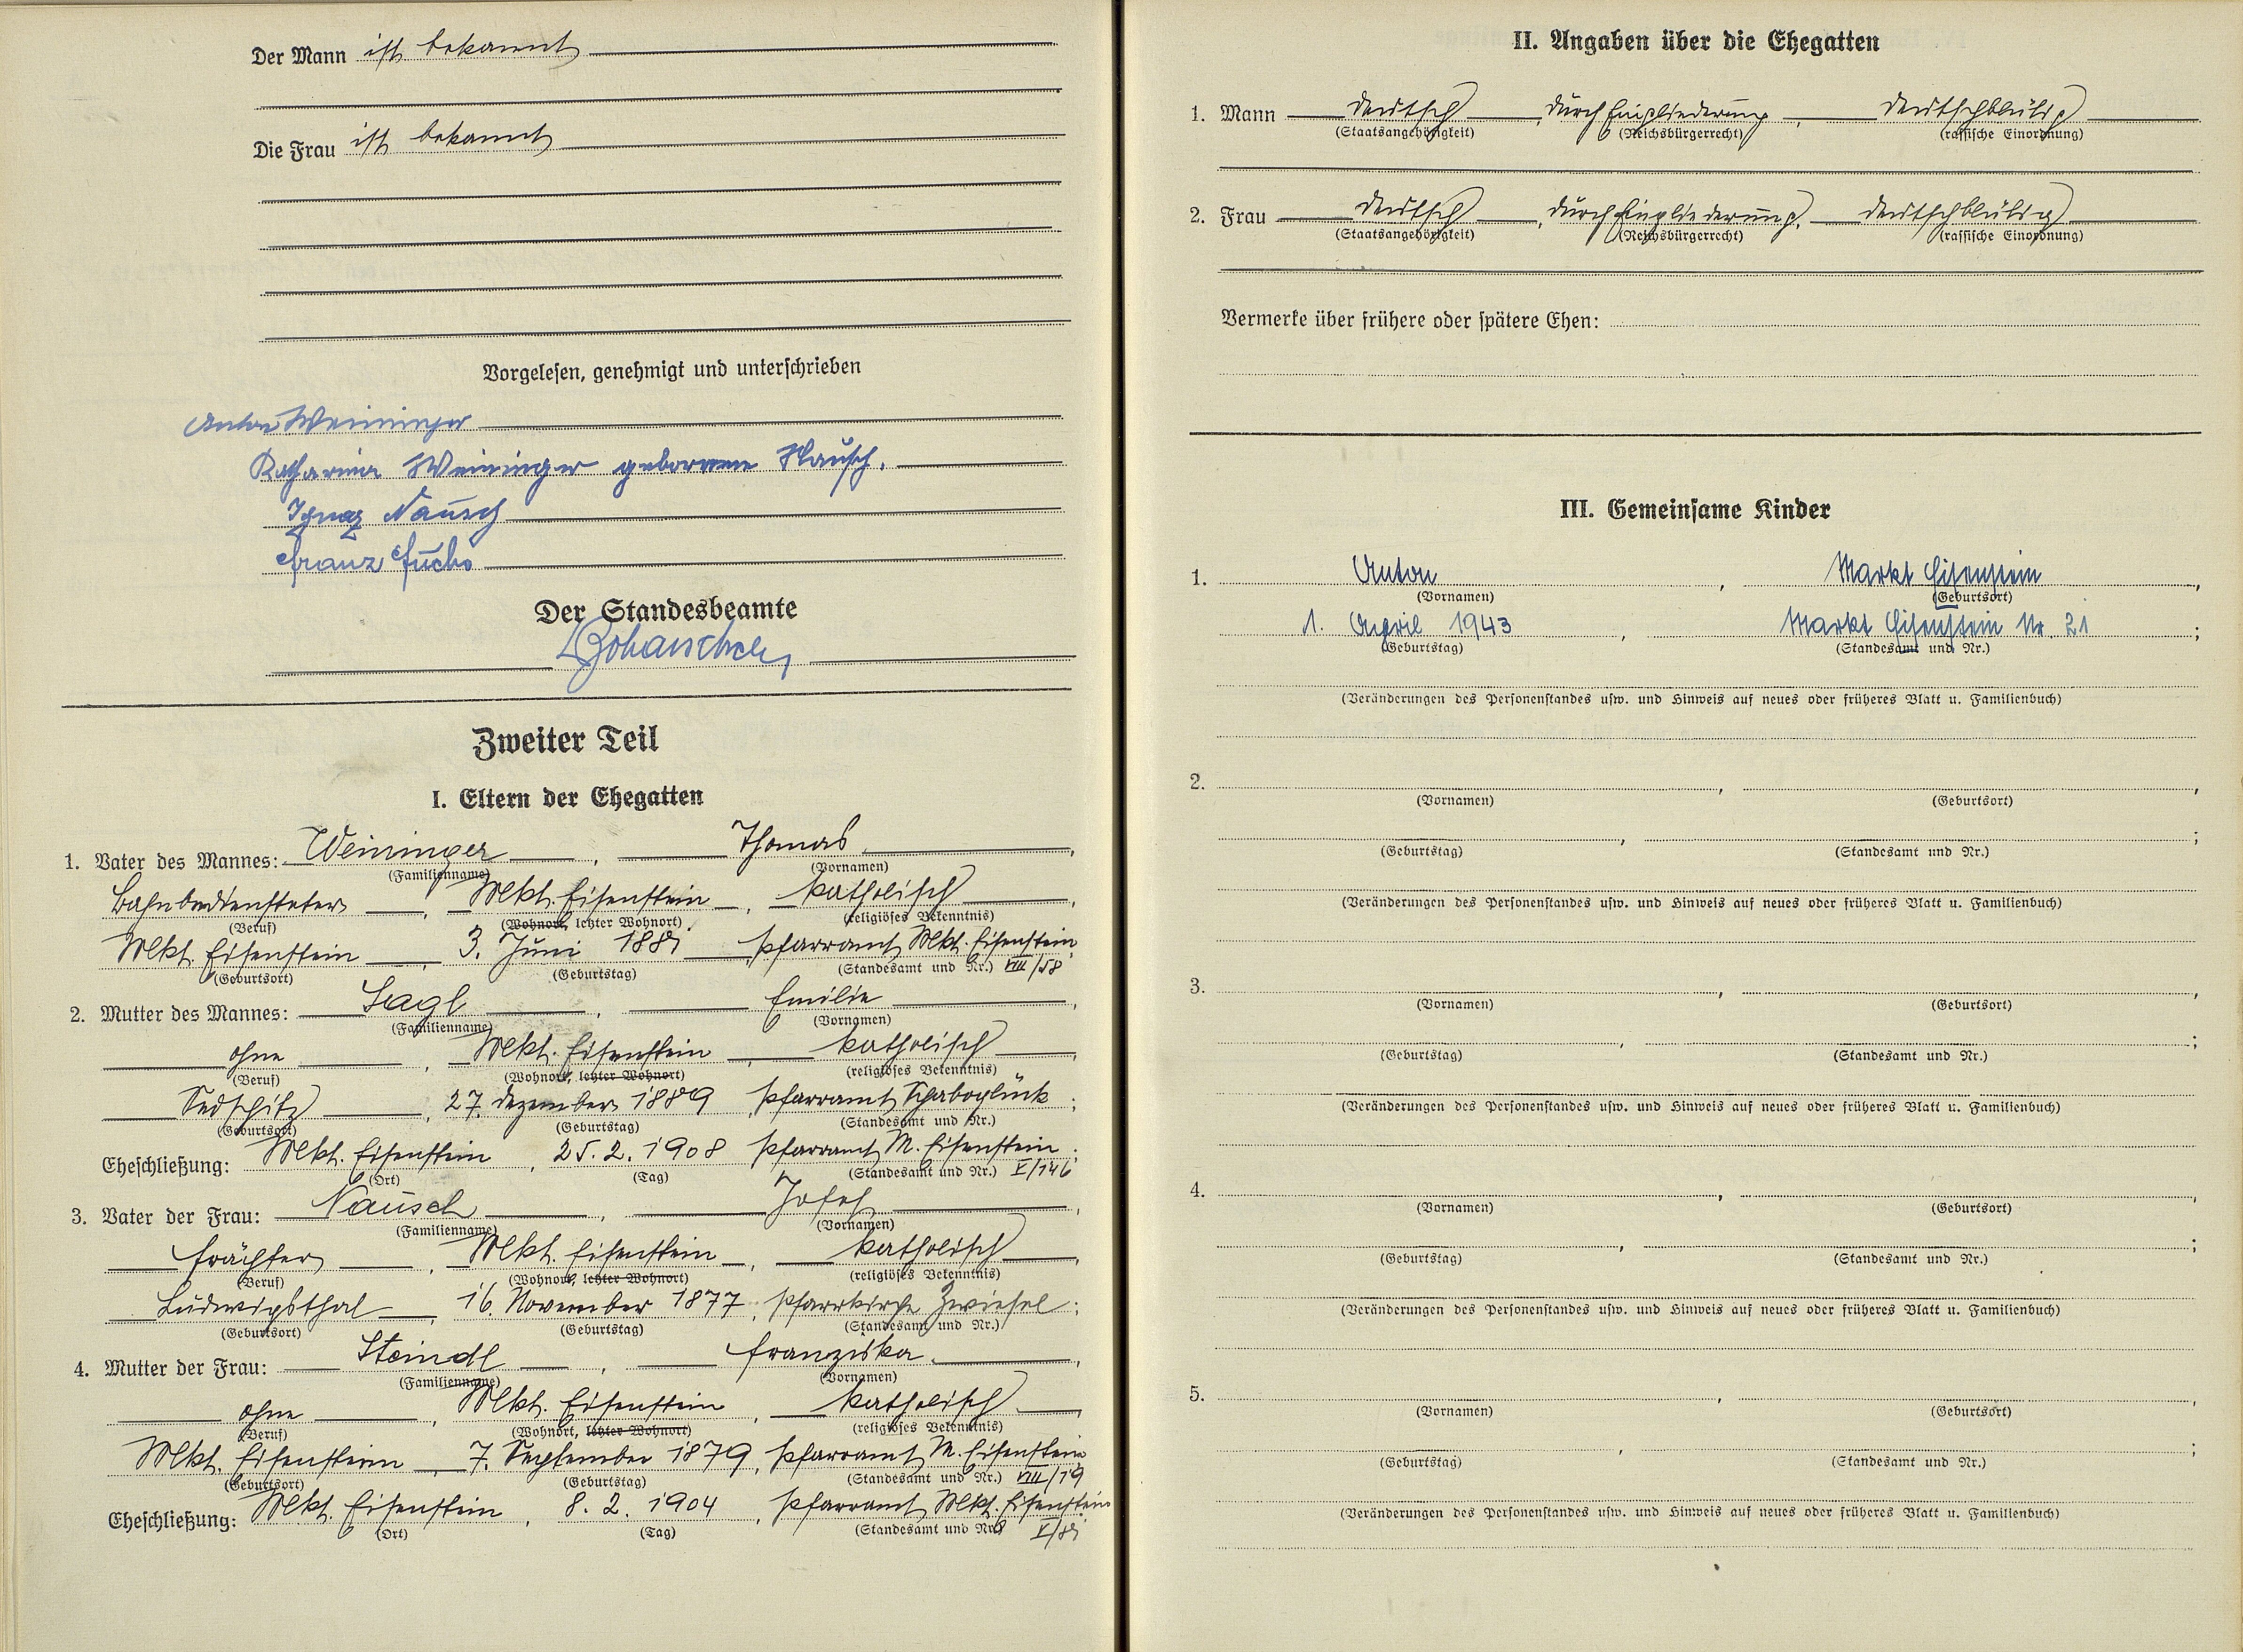 Der Mann ist bekannt
Die Frau ist bekannt
Vorgelesen, genehmigt und unterschrieben
Anton Weininger
Katharina Weininger geborene Nausch.
Ignaz Nausch
Franz Fuchs
Der Standesbeamte
Zweiter Teil
I. Eltern der Ehegatten
1. Vater des Mannes: Weininger, Thomas,
(Familienname) (Vornamen)
Bahnbediensteter, Mkt. Eisenstein, katholisch,
(Beruf) (Wohnort, letzter Wohnort) (religiöses Bekenntnis)
Mkt. Eisenstein, 3. Juni, Pfarramt Mkt. Eisenstein
(Geburtsort) (Geburtstag) (Standesamt und Nr.) VIII/58
2. Mutter des Mannes: Sagl, Emilie,
(Familienname) (Vornamen)
ohne, Mkt. Eisenstein, katholisch,
(Beruf) (Wohnort, letzter Wohnort) (religiöses Bekenntnis)
27. Dezember 1889 Pfarramt Schaboglück;
(Geburtsort) (Geburtstag) (Standesamt und Nr.)
Eheschließung: Mkt. Eisenstein, 25. 2. 1908 Pfarramt M. Eisenstein;
(Ort) (Tag) (Standesamt und Nr.) V/146
3. Vater der Frau: Nausch, Josef,
(Familienname) (Vornamen)
Frächter, Mkt. Eisenstein, katholisch,
(Beruf) (Wohnort, letzter Wohnort) (religiöses Bekenntnis)
Ludwigsthal, 16. November 1877, Pfarrkirche Zwiesel;
(Geburtsort) (Geburtstag) (Standesamt und Nr.)
4. Mutter der Frau: Steindl, Franziska,
(Familienname) (Vornamen)
ohne, Mkt. Eisenstein, katholisch,
(Beruf) (Wohnort, letzter Wohnort) (religiöses Bekenntnis)
Mkt. Eisenstein, 7. September 1879, Pfarramt M. Eisenstein
(Geburtsort) (Geburtstag) (Standesamt und Nr.) VIII/19
Eheschließung: Mkt. Eisenstein, 8. 2. 1904, Pfarramt Mkt. Eisenstein
(Ort) (Tag) (Standesamt und Nr.)
II. Angaben über die Ehegatten
1. Mann deutsch, durch Eingliederung, deutschblütig
(Staatsangehörigkeit) (Reichsbürgerrecht) (rassische Einordnung)
2. Frau deutsch, durch Eingliederung, deutschblütig
(Staatsangehörigkeit) (Reichsbürgerrecht) (rassische Einordnung)
Vermerke über frühere oder spätere Ehen:
III. Gemeinsame Kinder
1. Anton, Markt Eisenstein,
(Vornamen) (Geburtsort)
1. April 1943, Markt Eisenstein Nr. 21;
(Geburtstag) (Standesamt und Nr.)
(Veränderungen des Personenstandes usw. und Hinweis auf neues oder früheres Blatt u. Familienbuch)
2. , ,
(Vornamen) (Geburtsort)
, ;
(Geburtstag) (Standesamt und Nr.)
(Veränderungen des Personenstandes usw. und Hinweis auf neues oder früheres Blatt u. Familienbuch)
3. , ,
(Vornamen) (Geburtsort)
, ;
(Geburtstag) (Standesamt und Nr.)
(Veränderungen des Personenstandes usw. und Hinweis auf neues oder früheres Blatt u. Familienbuch)
4. , ,
(Vornamen) (Geburtsort)
, ;
(Geburtstag) (Standesamt und Nr.)
(Veränderungen des Personenstandes usw. und Hinweis auf neues oder früheres Blatt u. Familienbuch)
5. , ,
(Vornamen) (Geburtsort)
, ;
(Geburtstag) (Standesamt und Nr.)
(Veränderungen des Personenstandes usw. und Hinweis auf neues oder früheres Blatt u. Familienbuch)